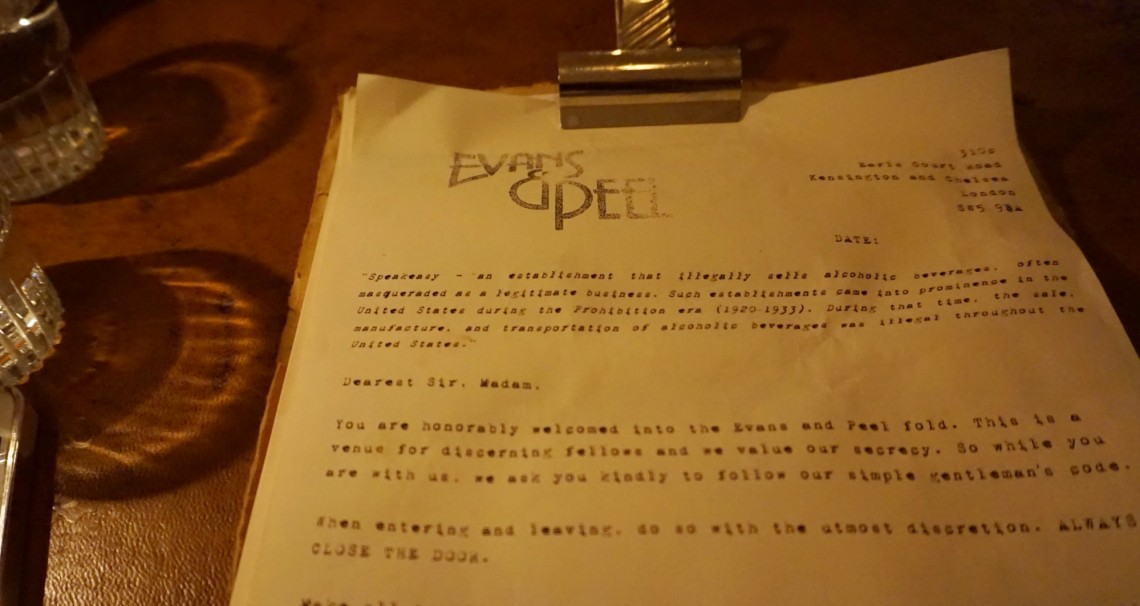 EVANS
& PEEL
310c
Earls Court Road
Kensington and Chelsea
London
SW5 9BA
DATE:
"Speakeasy - an establishment that illegally sells alcoholic beverages, often
masqueraded as a legitimate business. Such establishments came into prominence in the
United States during the Prohibition era (1920-1933). During that time, the sale,
manufacture, and transportation of alcoholic beveraged was illegal throughout the
United States."
Dearest Sir, Madam,
You are honorably welcomed into the Evans and Peel fold. This is a
venue for discerning fellows and we value our secrecy. So while you
are with us, we ask you kindly to follow our simple gentleman's code.
When entering and leaving, do so with the utmost discretion. ALWAYS
CLOSE THE DOOR.